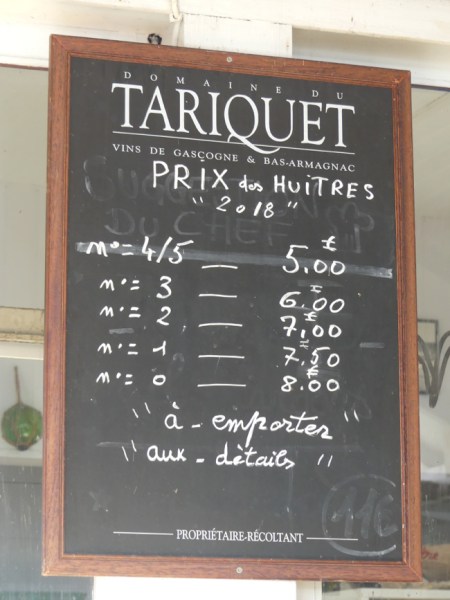 DOMAINE DU
TARIQUET
VINS DE GASCOGNE & BAS-ARMAGNAC
PRIX des HUITRES
"2018"
n° = 4/5 — 5.00 €
n° = 3 — 6.00 €
n° = 2 — 7.00 €
n° = 1 — 7.50 €
n° = 0 — 8.00 €
"à - emporter"
"aux - détails"
PROPRIÉTAIRE-RÉCOLTANT